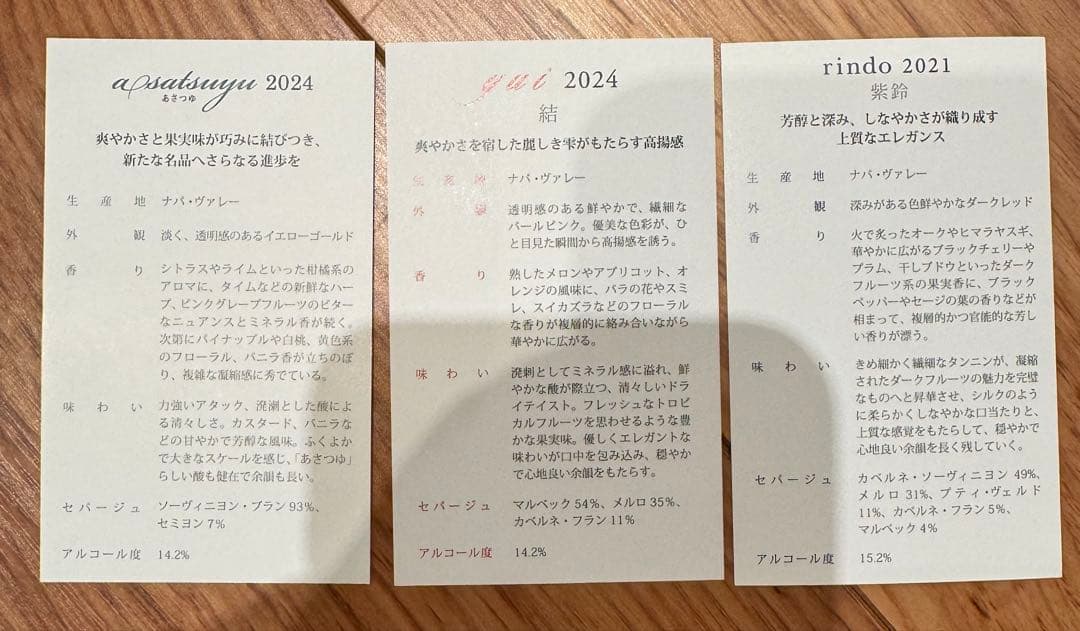 asatsuyu 2024
あさつゆ
爽やかさと果実味が巧みに結びつき、
新たな名品へさらなる進歩を
生産地 ナパ・ヴァレー
外観 淡く、透明感のあるイエローゴールド
香り シトラスやライムといった柑橘系の
アロマに、タイムなどの新鮮なハー
ブ、ピンクグレープフルーツのビター
なニュアンスとミネラル香が続く。
次第にパイナップルや白桃、黄色系
のフローラル、バニラ香が立ちのぼ
り、複雑な凝縮感に秀でている。
味わい 力強いアタック、溌溂とした酸によ
る清々しさ。カスタード、バニラな
どの甘やかで芳醇な風味。ふくよか
で大きなスケールを感じ、「あさつゆ」
らしい酸も健在で余韻も長い。
セパージュ ソーヴィニヨン・ブラン 93%、
セミヨン 7%
アルコール度 14.2%
yui 2024
結
爽やかさを宿した麗しき雫がもたらす高揚感
生産地 ナパ・ヴァレー
外観 透明感のある鮮やかで、繊細な
パールピンク。優美な色彩が、ひ
と目見た瞬間から高揚感を誘う。
香り 熟したメロンやアプリコット、オ
レンジの風味に、バラの花やスミ
レ、スイカズラなどのフローラル
な香りが複層的に絡み合いながら
華やかに広がる。
味わい 溌剌としてミネラル感に溢れ、鮮
やかな酸が際立つ、清々しいドラ
イテイスト。フレッシュなトロピ
カルフルーツを思わせるような豊
かな果実味。優しくエレガントな
味わいが口中を包み込み、穏やか
で心地良い余韻をもたらす。
セパージュ マルベック 54%、メルロ 35%、
カベルネ・フラン 11%
アルコール度 14.2%
rindo 2021
紫鈴
芳醇と深み、しなやかさが織り成す
上質なエレガンス
生産地 ナパ・ヴァレー
外観 深みがある色鮮やかなダークレッド
香り 火で炙ったオークやヒマラヤスギ、
華やかに広がるブラックチェリーや
プラム、干しブドウといったダーク
フルーツ系の果実香に、ブラック
ペッパーやセージの葉の香りなどが
相まって、複層的かつ官能的な芳し
い香りが漂う。
味わい きめ細かく繊細なタンニンが、凝縮
されたダークフルーツの魅力を完璧
なものへと昇華させ、シルクのよう
に柔らかくしなやかな口当たりと、
上質な感覚をもたらして、穏やかで
心地良い余韻を長く残していく。
セパージュ カベルネ・ソーヴィニヨン 49%、
メルロ 31%、プティ・ヴェルド
11%、カベルネ・フラン 5%、
マルベック 4%
アルコール度 15.2%